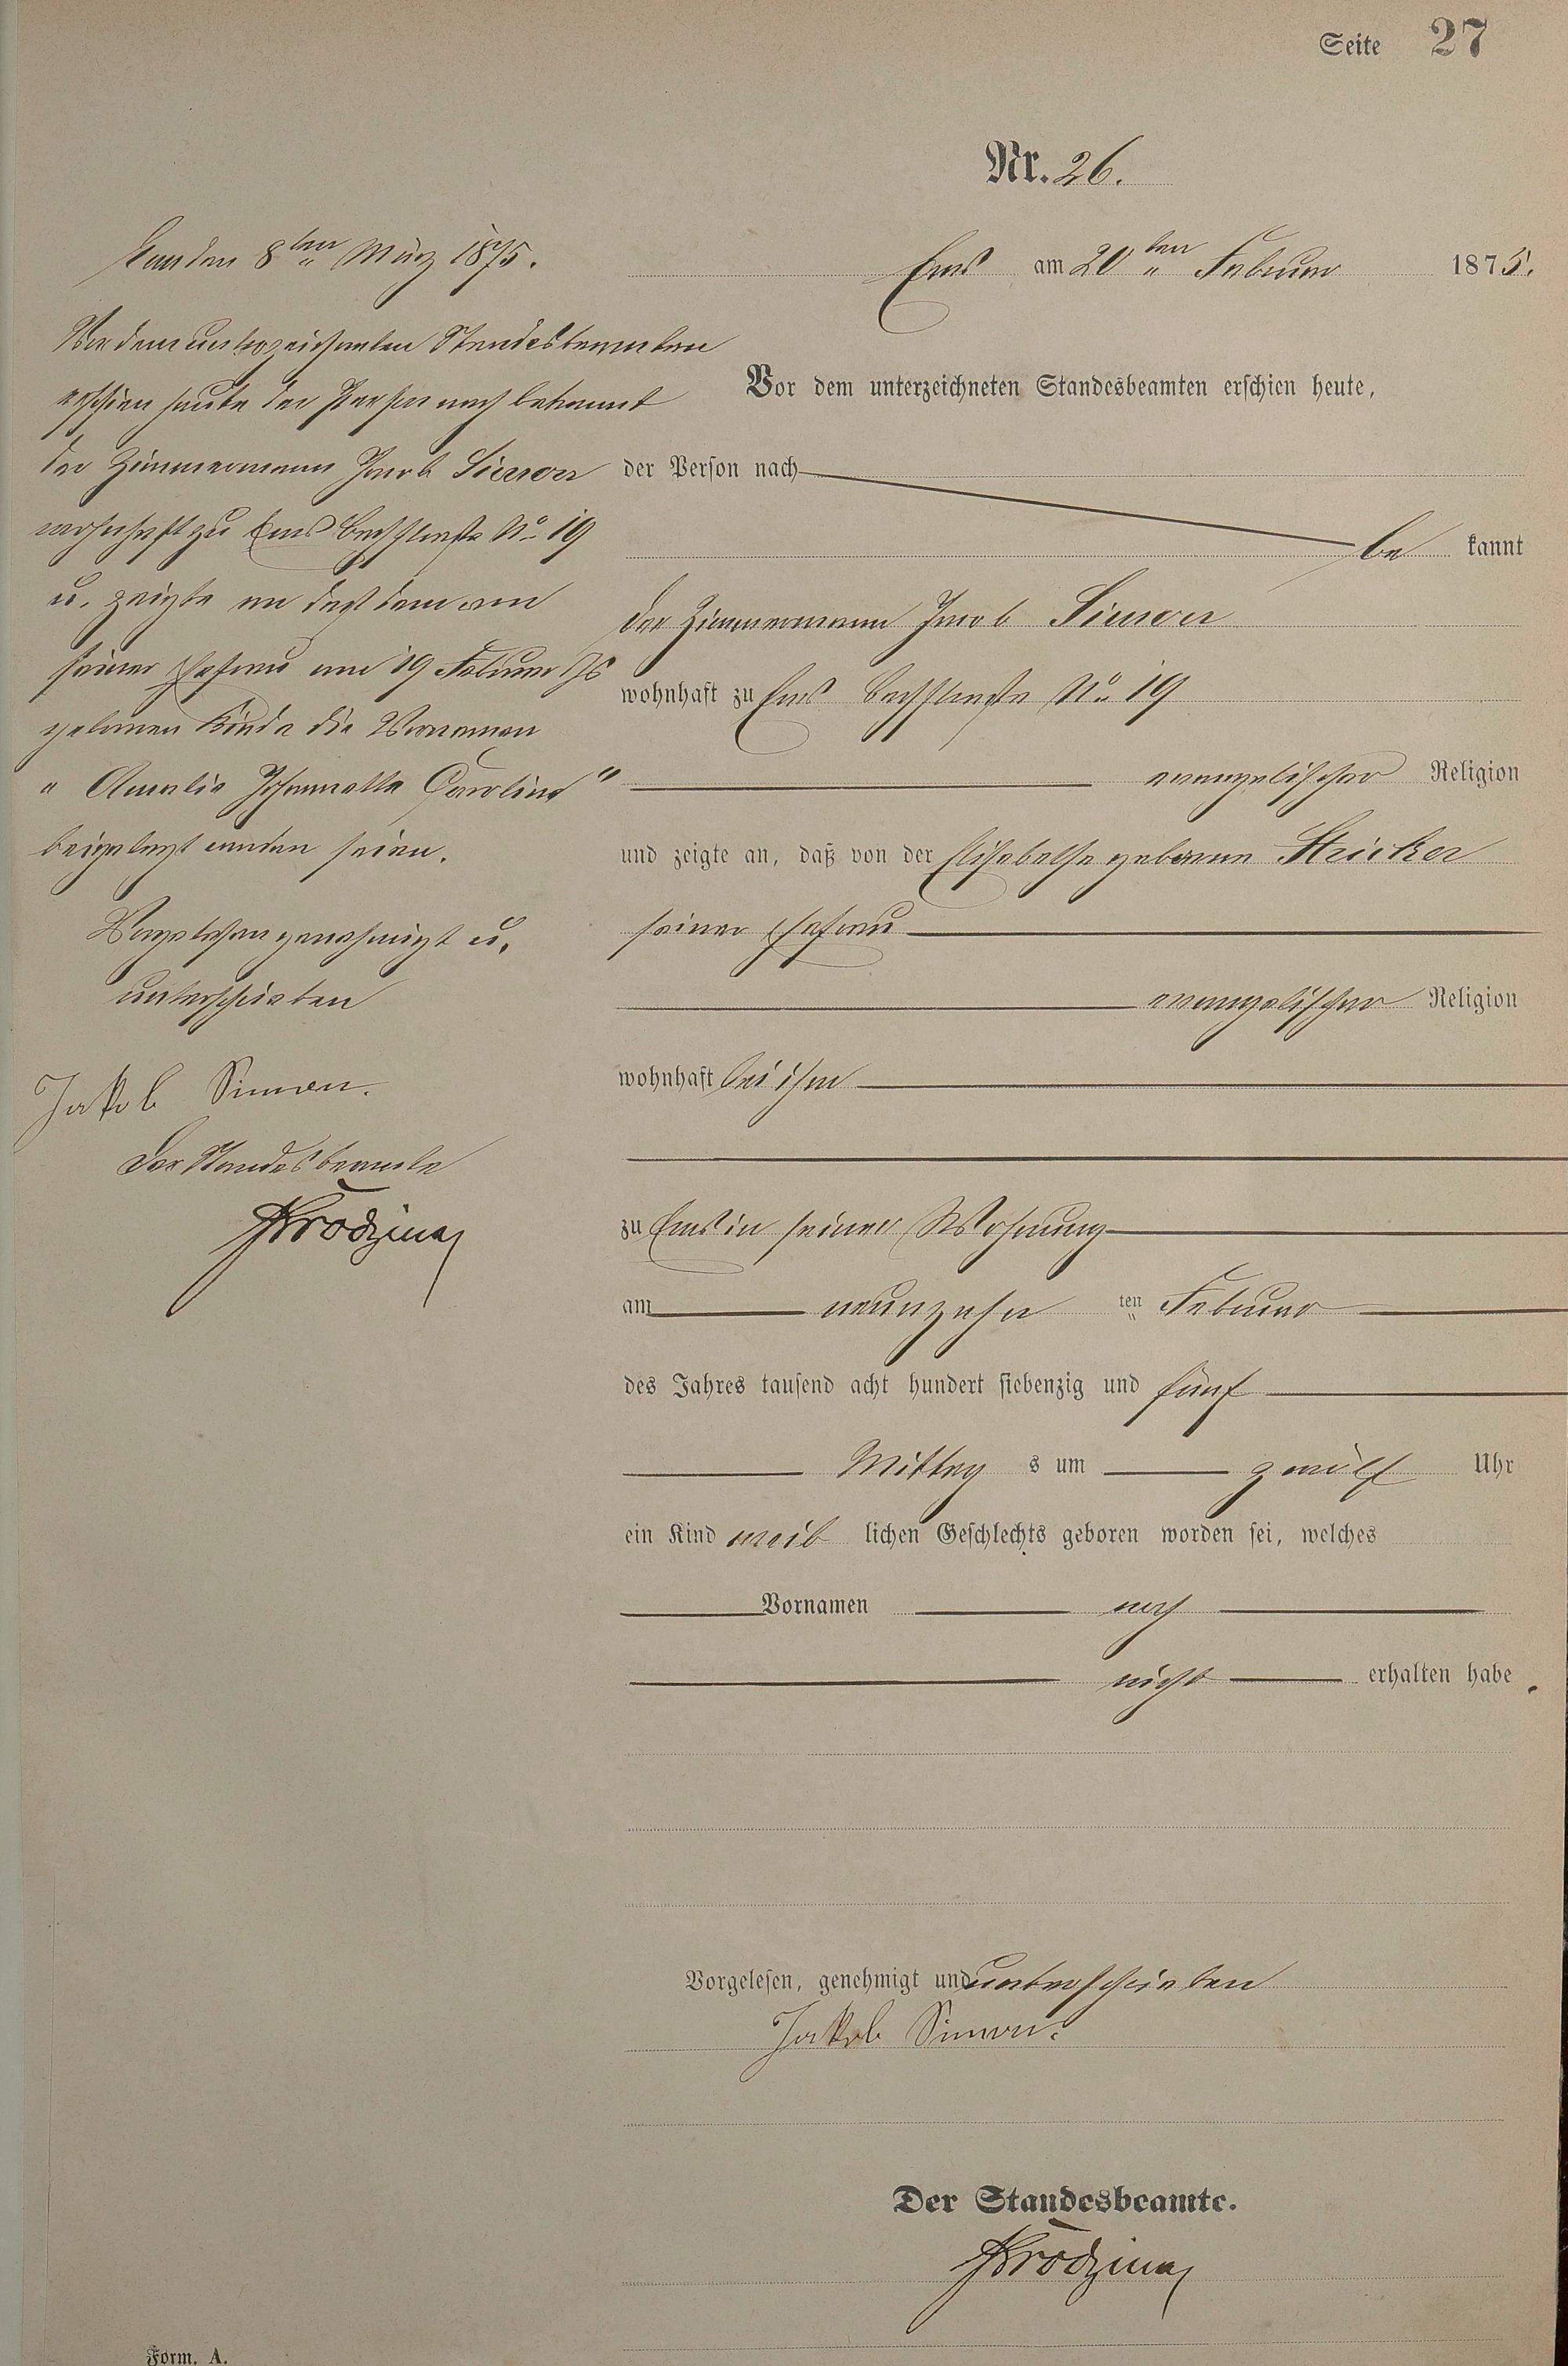 Seite 27
Nr. 26.
Ems am 20ten Februar 1875.
Vor dem unterzeichneten Standesbeamten erschien heute,
der Person nach
bekannt
der Zimmermann Jacob Simon
wohnhaft zu Ems Bachstraße No 19
evangelischer Religion
und zeigte an, daß von der Elisabethe geborene Stricker
seiner Ehefrau
evangelischer Religion
wohnhaft bei ihm
zu Ems in seiner Wohnung
am neunzehn ten Februar
des Jahres tausend acht hundert siebenzig und fünf
Mittag s um zwölf Uhr
ein Kind weib lichen Geschlechts geboren worden sei, welches
Vornamen noch
nicht erhalten habe.
Vorgelesen, genehmigt und unterschrieben
Jakob Simon.
Der Standesbeamte.
den 8ten März 1875.
Vor dem unterzeichneten Standesbeamten
erschien heute der Person nach bekannt
der Zimmermann Jacob Simon
wohnhaft zu Ems Bachstraße No 19
u. zeigte an daß dem von
seiner Ehefrau am 19 Februar
geborenen Kinde die Vornamen
"Amalie Johannette Caroline"
beigelegt worden seien.
Vorgelesen genehmigt u.
unterschrieben
Jakob Simon.
Der Standesbeamte
Form. A.